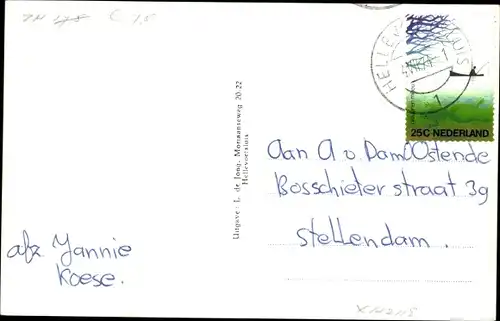 25C NEDERLAND
Uitgave: L. de Jong, Moriaanseweg 20-22
Hellevoetsluis
Aan A v. Dam Ostende
Bosschieterstraat 39
Stellendam.
afz Jannie
Koese.